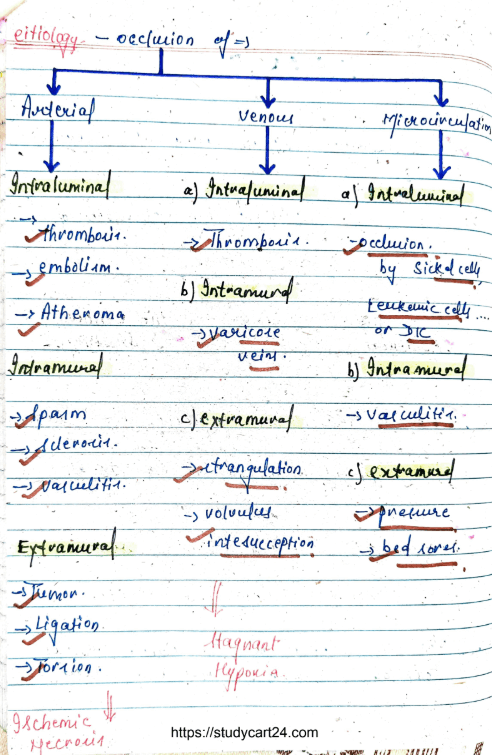 eitiology - occlusion of =>
Arterial
Intraluminal
→ thrombosis.
→ embolism.
→ Atheroma
Intramural
→ Spasm
→ sclerosis.
→ vasculitis.
Extramural
→ Tumor.
→ Ligation
→ Torsion.
Ischemic
Necrosis
Venous
a) Intraluminal
→ Thrombosis.
b) Intramural
→ varicose
veins.
c) extramural
→ strangulation
→ volvulus
intesucception
Stagnant
Hypoxia
Microcirculation
a) Intraluminal
- occlusion.
by Sickel cells,
Leukemic cells
or DIC
b) Intramural
→ vasculitis.
c) extramural
→ pressure
→ bed sores.
https://studycart24.com